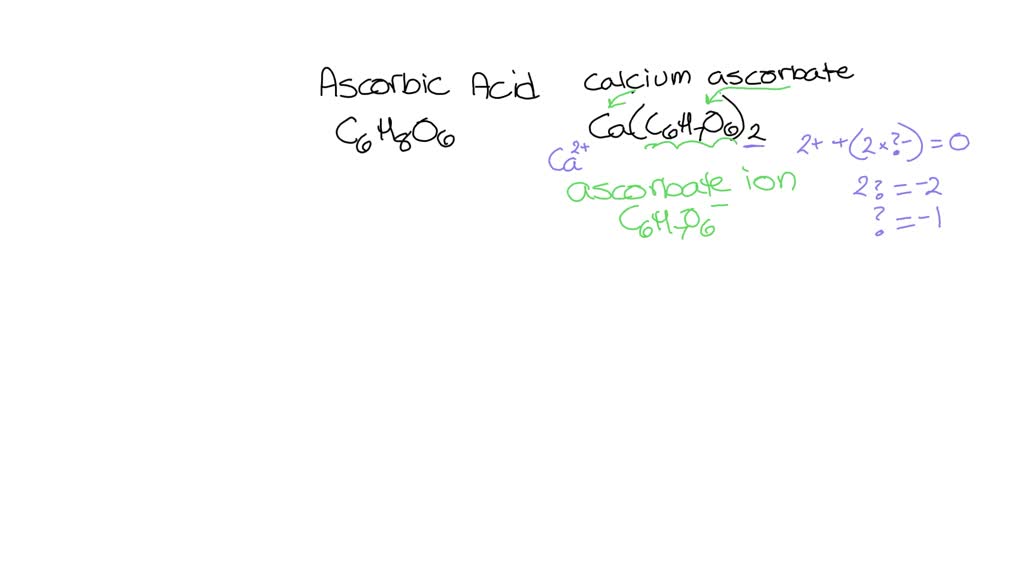 Ascorbic Acid
C6H8O6
calcium ascorbate
Ca(C6H7O6)2
Ca2+
ascorbate ion
C6H7O6−
2+ + (2×?−) = 0
2? = -2
? = -1